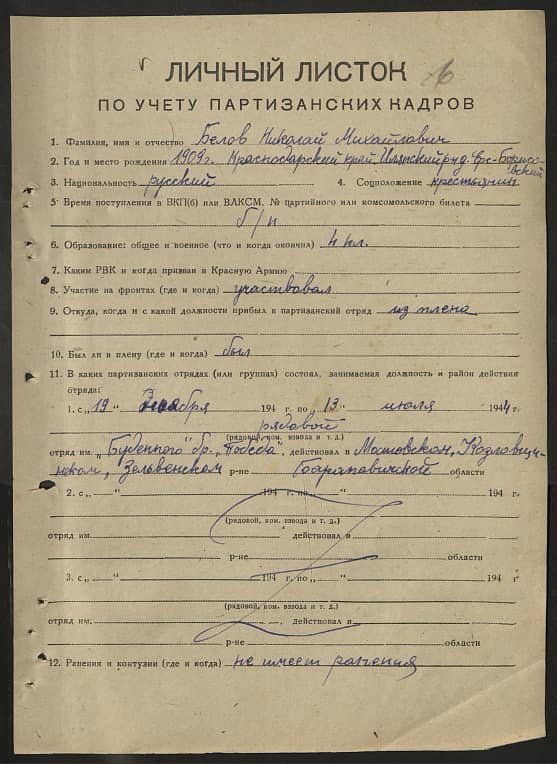 6
ЛИЧНЫЙ ЛИСТОК
ПО УЧЕТУ ПАРТИЗАНСКИХ КАДРОВ
1. Фамилия, имя и отчество Белов Николай Михайлович
2. Год и место рождения 1909 г. Краснодарский край
3. Национальность русский 4. Соцположение крестьянин
5 Время поступления в ВКП(б) или ВЛКСМ, № партийного или комсомольского билета
б/п
6. Образование: общее и военное (что и когда окончил) 4 кл.
7. Каким РВК и когда призван в Красную Армию
8. Участие на фронтах (где и когда) участвовал
9. Откуда, когда и с какой должности прибыл в партизанский отряд из плена
10. Был ли в плену (где и когда) был
11. В каких партизанских отрядах (или группах) состоял, занимаемая должность и район действия
отряда:
1. с „19 “ 194 г. по „13 “ июля 1944 г.
рядовой
(рядовой, ком. взвода и т. д.)
отряд им. „Буденного" бр. „Победа" действовал в Мостовском, Козловщин-
ском, Зельвенском р-не Барановичской области
2. с „ “ 194 г. по „ “ 194 г.
(рядовой, ком. взвода и т. д.)
отряд им. действовал в
р-не области
3. с „ “ 194 г. по „ “ 194 г.
(рядовой, ком. взвода и т. д.)
отряд им. , действовал в
р-не области
12. Ранения и контузии (где и когда) не имеет ранения